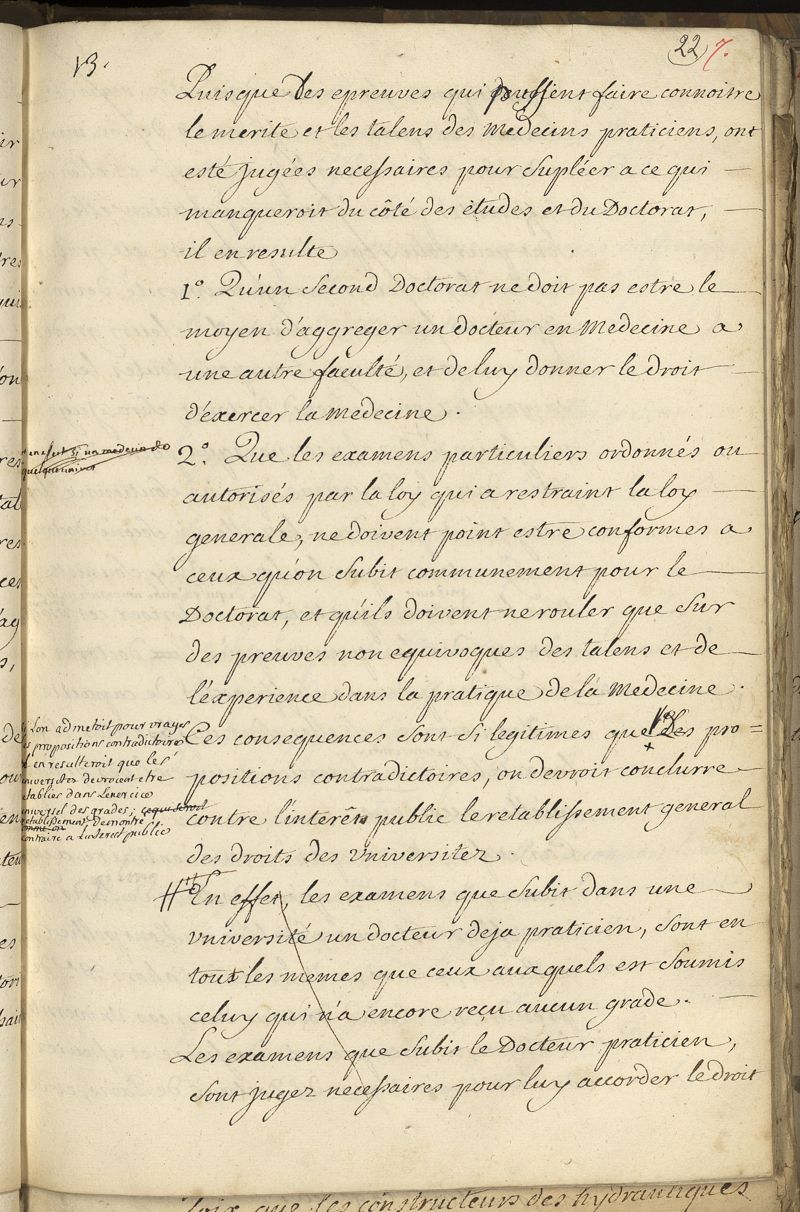 13.
22 7.
Puisque des epreuves qui pussent faire connoitre
le merite et les talens des Medecins praticiens, ont
esté jugées necessaires pour supléer a ce qui
manqueroit du côté des études et du Doctorat,
il en resulte
1.° Qu'un second Doctorat ne doit pas estre le
moyen d'aggreger un docteur en Medecine a
une autre faculté, et de luy donner le droit
d'exercer la medecine.
en effet si un medecin de
2.° Que les examens particuliers ordonnés ou
autorisés par la loy qui a restraint la loy
generale, ne doivent point estre conformes a
ceux qu'on subit communement pour le
Doctorat, et qu'ils doivent ne rouler que sur
des preuves non equivoques des talens et de
l'éxperience dans la pratique de la Medecine.
Ces consequences sont si legitimes que des pro=
positions contradictoires, on devroit conclurre
contre l'interêt public le retablissement general
des droits des Vniversitez.
l'on admetoit pour vrayes
propositions contradictoires
en resulteroit que les
devroient etre
établies dans l'exercice
des grades; ce qui seroit
retablissement demontré si
contraire a l'interest public
En effet, les examens que subit dans une
Vniversité un docteur deja praticien, sont en
tout les mêmes que ceux auxquels est soumis
celuy qui n'a encore reçu aucun grade.
Les examens que subit le Docteur praticien,
sont jugez necessaires pour luy accorder le droit
loix que les constructeurs des hydrauliques